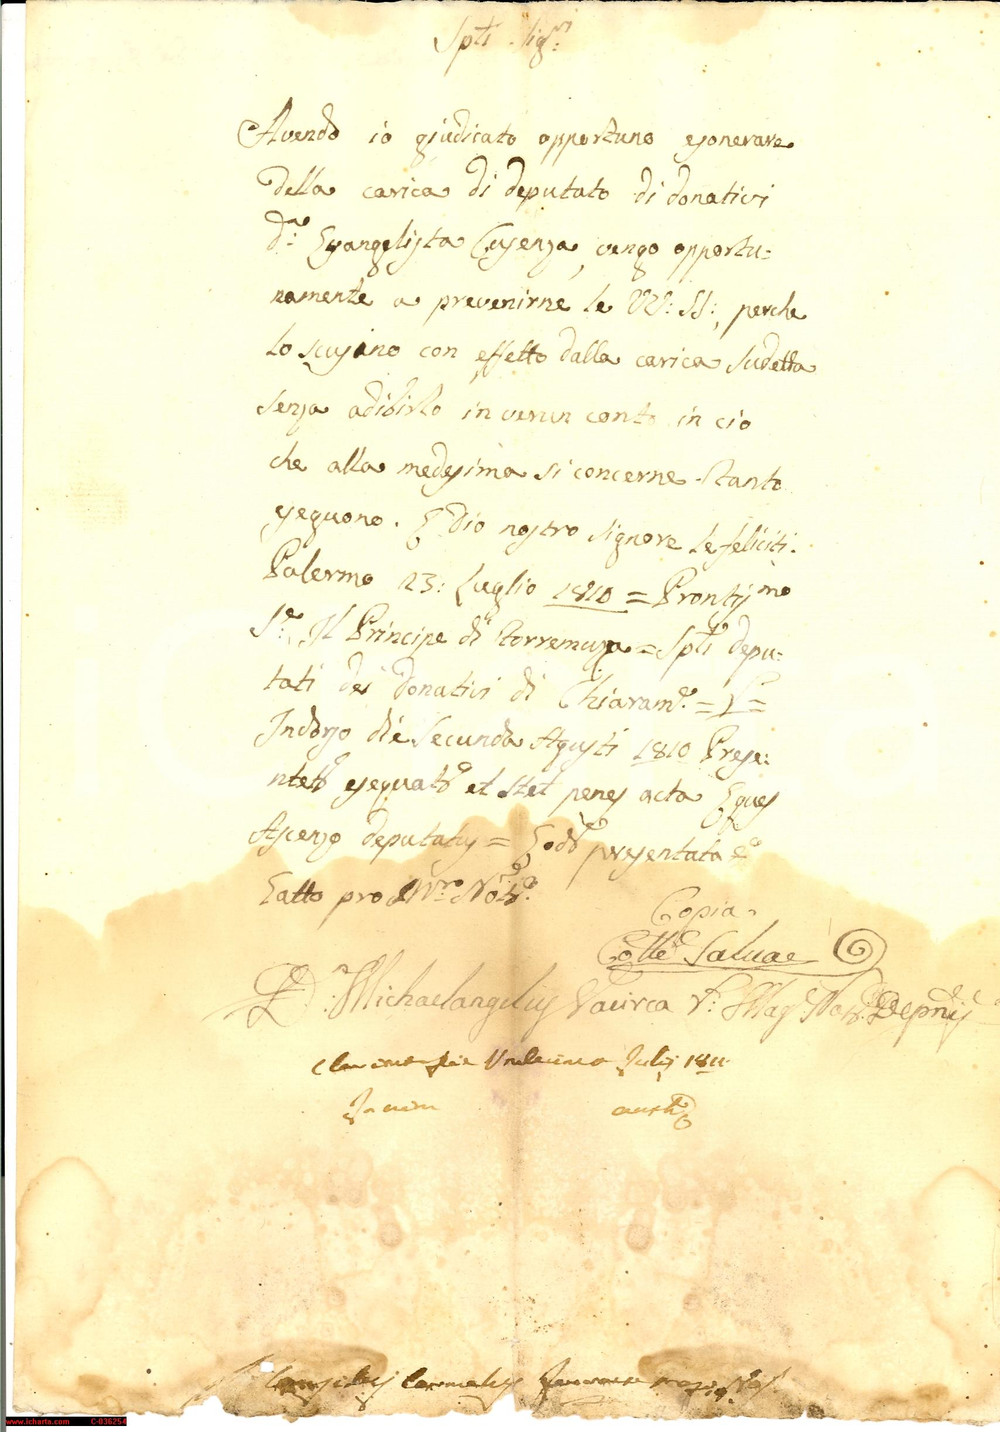 Sp.ti Sig.ri
Avendo io giudicato opportuno esonerare
della carica di deputato di donativi
D.n Evangelista Cusenza, vengo opportu=
namente a prevenirne le VV: SS:, perche
lo scusino con effetto dalla carica sudetta
senza adibirlo in verun conto in cio
che alla medesima si concerne. Stanto
eseguono. E Dio nostro Signore le feliciti.
Palermo 23: Luglio 1810 = Prontis.mo
S.re Il Principe di Torremuza = Sp.ti depu=
tati dei donativi di Chiaram.e =
die Secunda Agusti 1810 Prese=
ntet.r exequat.r et stet penes acta Eques
Ascenzo deputatus = presentata
fatto pro me Not.o
Copia
Coll.e Salva
D. Michaelangelus Vacirca
Undecimo Julij 1811